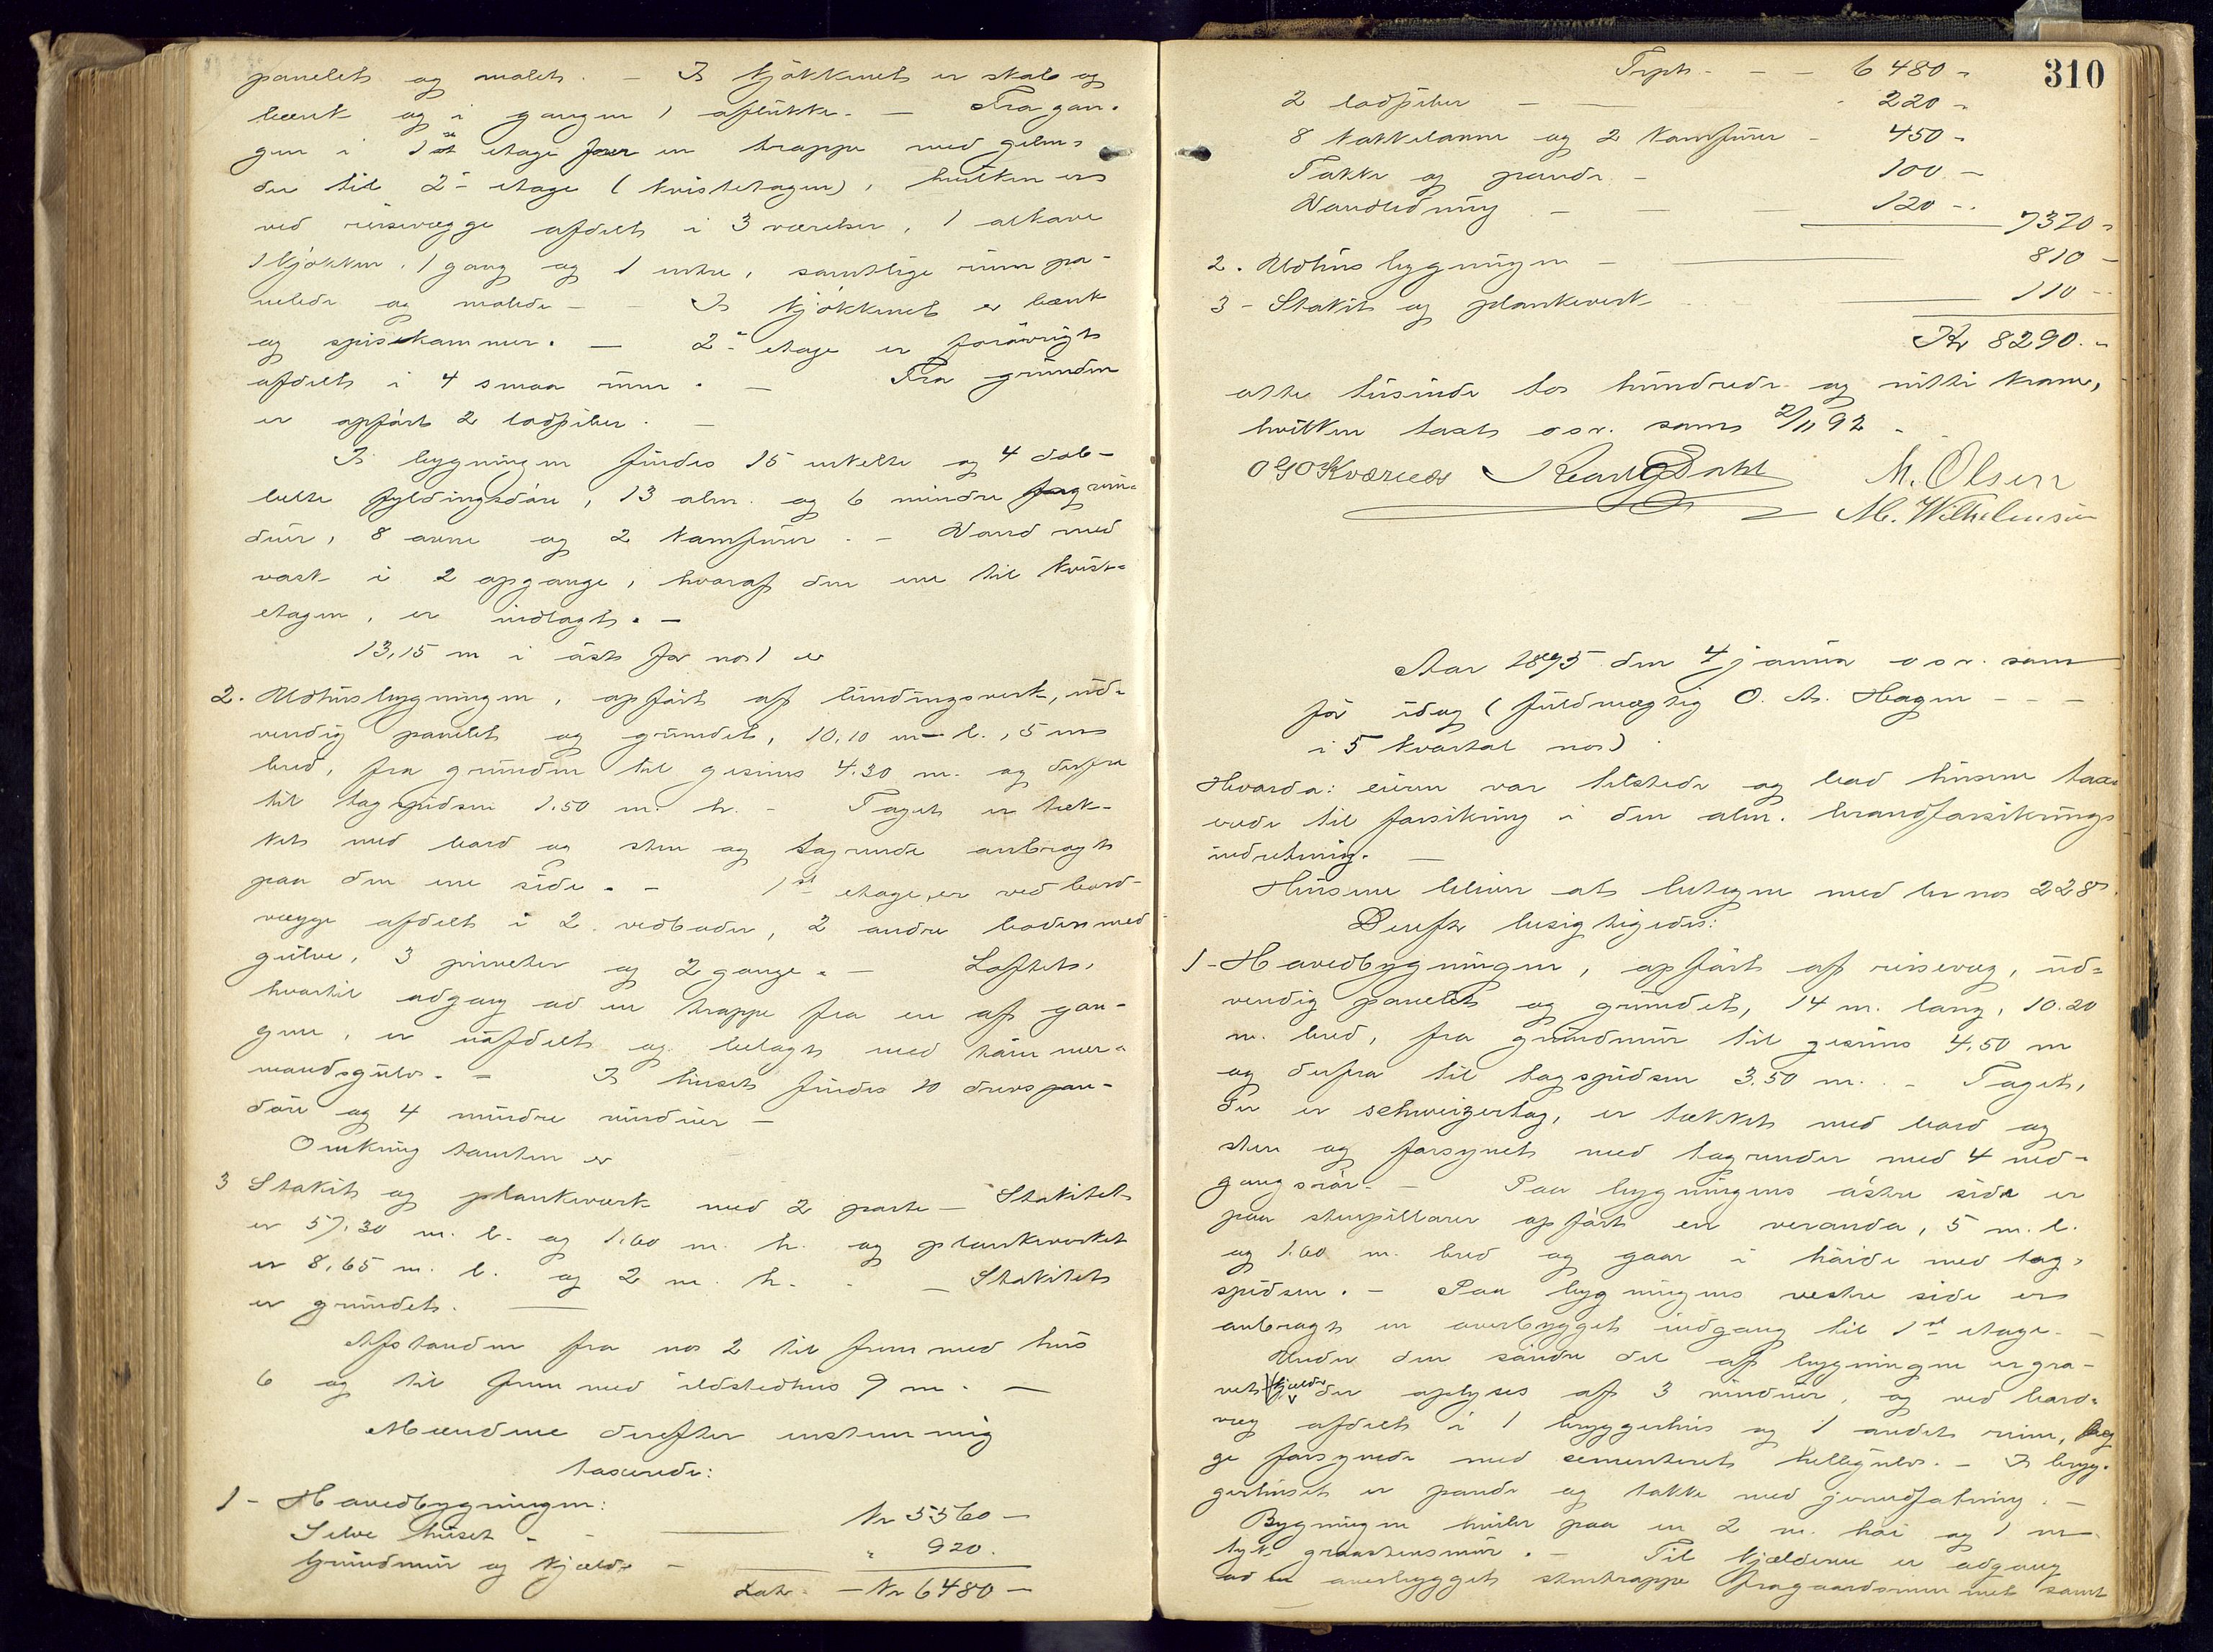 panelet og malet. - I kjøkkenet er skab og
bænk og i gangen 1 aflukke. - Fra gan-
gen i 1st etage fører en trappe med gelæn-
der til 2- etage (kvistetagen), hvilken er
ved reisevægge afdelt i 3 værelser, 1 alkove
1 kjøkken, 1 gang og 1 entre, samtlige rum pa-
nelede og malede - - I kjøkkenet er bænk
og spisekammer. - 2- etage er forøvrigt
afdelt i 4 smaa rum. - Fra grunden
er opført 2 lodpiber. -
I bygningen findes 15 enkelte og 4 dob-
belte fyldingsdøre, 13 alm. og 6 mindre fag vin-
duer, 8 ovne og 2 komfurer. - Vand med
vask i 2 opgange, hvoraf den ene til kvist-
etagen, er indlagt. -
13,15 m i øst for no 1 er
2. Udhusbygningen, opført af bindingsverk, ud-
vendig panelet og grundet, 10.10 m l., 5 m
bred, fra grunden til gesims 4.30 m. og derfra
til tagspidsen 1.50 m. h. - Taget er tæk-
ket med bord og sten og tagrende anbragt
paa den ene side. - 1st etage er ved bord-
vægge afdelt i 2 vedboder, 2 andre boder med
gulve, 3 priveter og 2 gange. - Loftet,
hvortil adgang ad en trappe fra en af gan-
gene, er uafdelt og belagt med tømmer-
mandsgulv. - I huset findes 10 drevspan-
døre og 4 mindre vinduer -
Omkring tomten er
3 Stakit og plankeværk med 2 porte - Stakitet
er 57.30 m. l. og 1.60 m. h. og plankeverket
er 8.65 m. l. og 2 m. h. - - Stakitet
er grundet. -
Afstanden fra no 2 til fremmed hus
6 og til fremmed ildstedhus 9 m. -
Mændene derefter enstemmig
taxerede:
1 - Hovedbygningen:
Selve huset - - Kr 5560 -
Grundmur og kjelder - " 920.
Lat. - Kr 6480 -
310
Trpt. - - - 6480 -
2 lodpiber - - 220 -
8 kakkelovne og 2 komfurer - 450 -
Takke og pande - 100 -
Vandledning - - 120 -. 7370 -
2. Udhusbygningen - 810 -
3 - Stakit og plankeverk 110 -
Kr 8290. -
otte tusinde to hundrede og nitti kroner,
hvilken taxt o s v. som 2/11 92 -
M. Olsen
M. Wilhelmsen
Aar 1895 den 4 januar o s v. som
før idag (fuldmægtig O. A. Hagen - - -
i 5 kvartal no )
Hvorda: eieren var tilstede og bad husene taxe-
rede til forsikring i den alm. brandforsikrings
indretning. -
Husene bliver at betegne med br no 228
Derefter besigtigedes:
1 - Hovedbygningen, opført af reisevæg, ud-
vendig panelet og grundet, 14 m. lang, 10.20
m. bred, fra grundmur til gesims 4.50 m
og derfra til tagspidsen 3.50 m. - Taget,
der er schweizertag, er tækket med bord og
sten og forsynet med tagrender med 4 ned-
gangsrør. - Paa bygningens østre side er
paa stenpillarer opført en veranda, 5 m. l.
og 1.60 m. bred og gaar i høide med tag-
spidsen. - Paa bygningens vestre side er
anbragt en overbygget indgang til 1st etage. -
Under den søndre del af bygningen er gra-
vet kjelder der oplyses af 3 vinduer, og ved bord-
væg afdelt i 1 bryggerhus og 1 andet rum, beg
ge forsynede med sementeret hellegulv. - I bryg-
gerhuset er pande og takke med jernindfatning. -
Bygningen hviler paa en 2 m. høi og 1 m
tyk graastensmur. - Til kjelderen er adgang
ad en overbygget stentrappe fra gaardsrummet samt